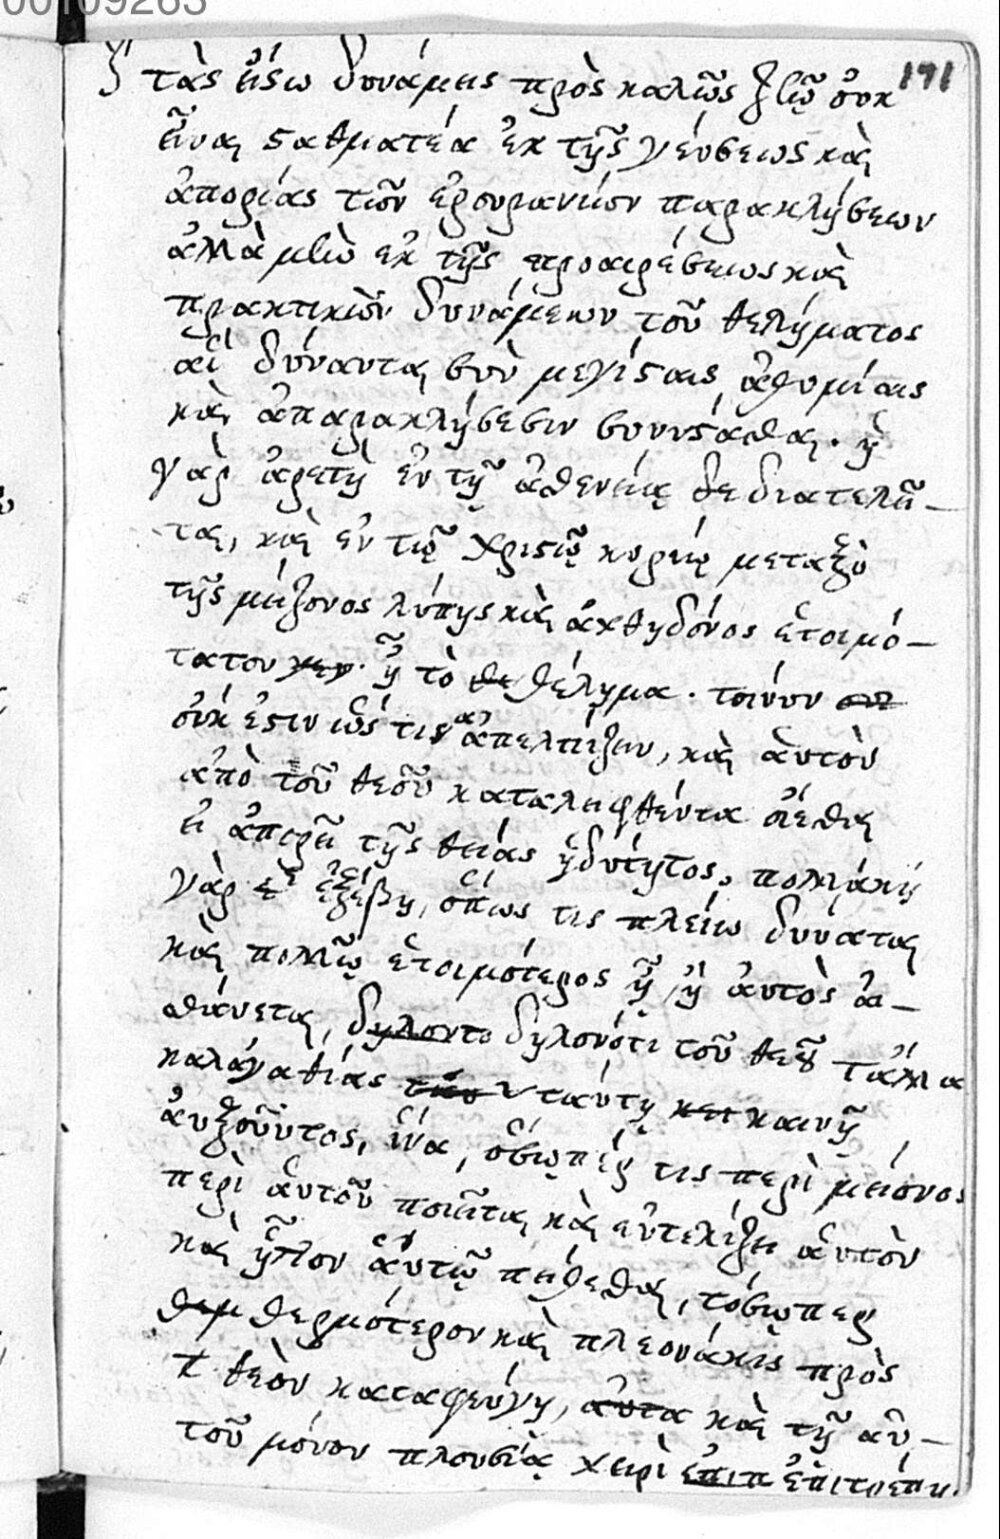 00109263
191
τὰς εἴσω δυνάμεις πρὸς καλῶς ζῆν οὐκ
εἶναι σταθματέα ἐκ τῆς γεύσεως καὶ
ἀπορίας τῶν ἐρουρανίων παρακλήσεων
ἀλλὰ μὴν ἐκ τῆς προαιρέσεως καὶ
πρακτικῶν δυνάμεων τοῦ θελήματος
αἳ δύνανται σὺν μεγίσταις ἀθυμίαις
καὶ ἀπαρακλήσεσιν συνιστάσθαι. ἡ
γὰρ ἀρετὴ ἐν τῇ ἀσθενείᾳ δε διατελεῖ-
ται, καὶ ἐν τῷ χριστῷ κυρίῳ μεταξὺ
τῆς μείζονος λύπης καὶ ἀχθηδόνος ἑτοιμό-
τατον ἦν τὸ θέλημα. τοίνυν
οὐκ ἔστιν ὥς τις ἀπελπίζειν, καὶ αὑτὸν
ἀπὸ τοῦ θεοῦ καταλειφθέντα οἴεσθαι
εἰ ἀπορεῖ τῆς θείας ἡδύτητος, πολλάκις
γὰρ ἐξέβη, ὅπως τις πλείω δύναται
καὶ πολλῷ ἑτοιμότερος ᾖ ἢ αὐτὸς αἰ-
σθάνεται, δηλονότι τοῦ θεοῦ τἄλλα
καλάγαθίας ταύτῃ καινῇ
αὐξοῦντος, ἵνα, ὅσῳπέρ τις περὶ μείονος
περὶ αὑτοῦ ποιεῖται καὶ εὐτελίζει αὑτὸν
καὶ ἧττον αὑτῷ πείθεσθαι, τόσῳπερ
θερμότερον καὶ πλεονάκις πρὸς
τ θεὸν καταφεύγῃ, καὶ τῇ αὐ-
τοῦ μόνου πλουσίᾳ χειρὶ ἐπιτρέπῃ.